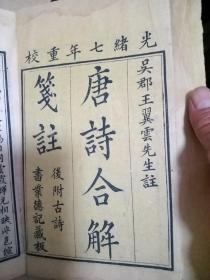 光緒七年重校
吳郡王翼雲先生註
唐詩合解
箋註
後附古詩
書業德記藏板